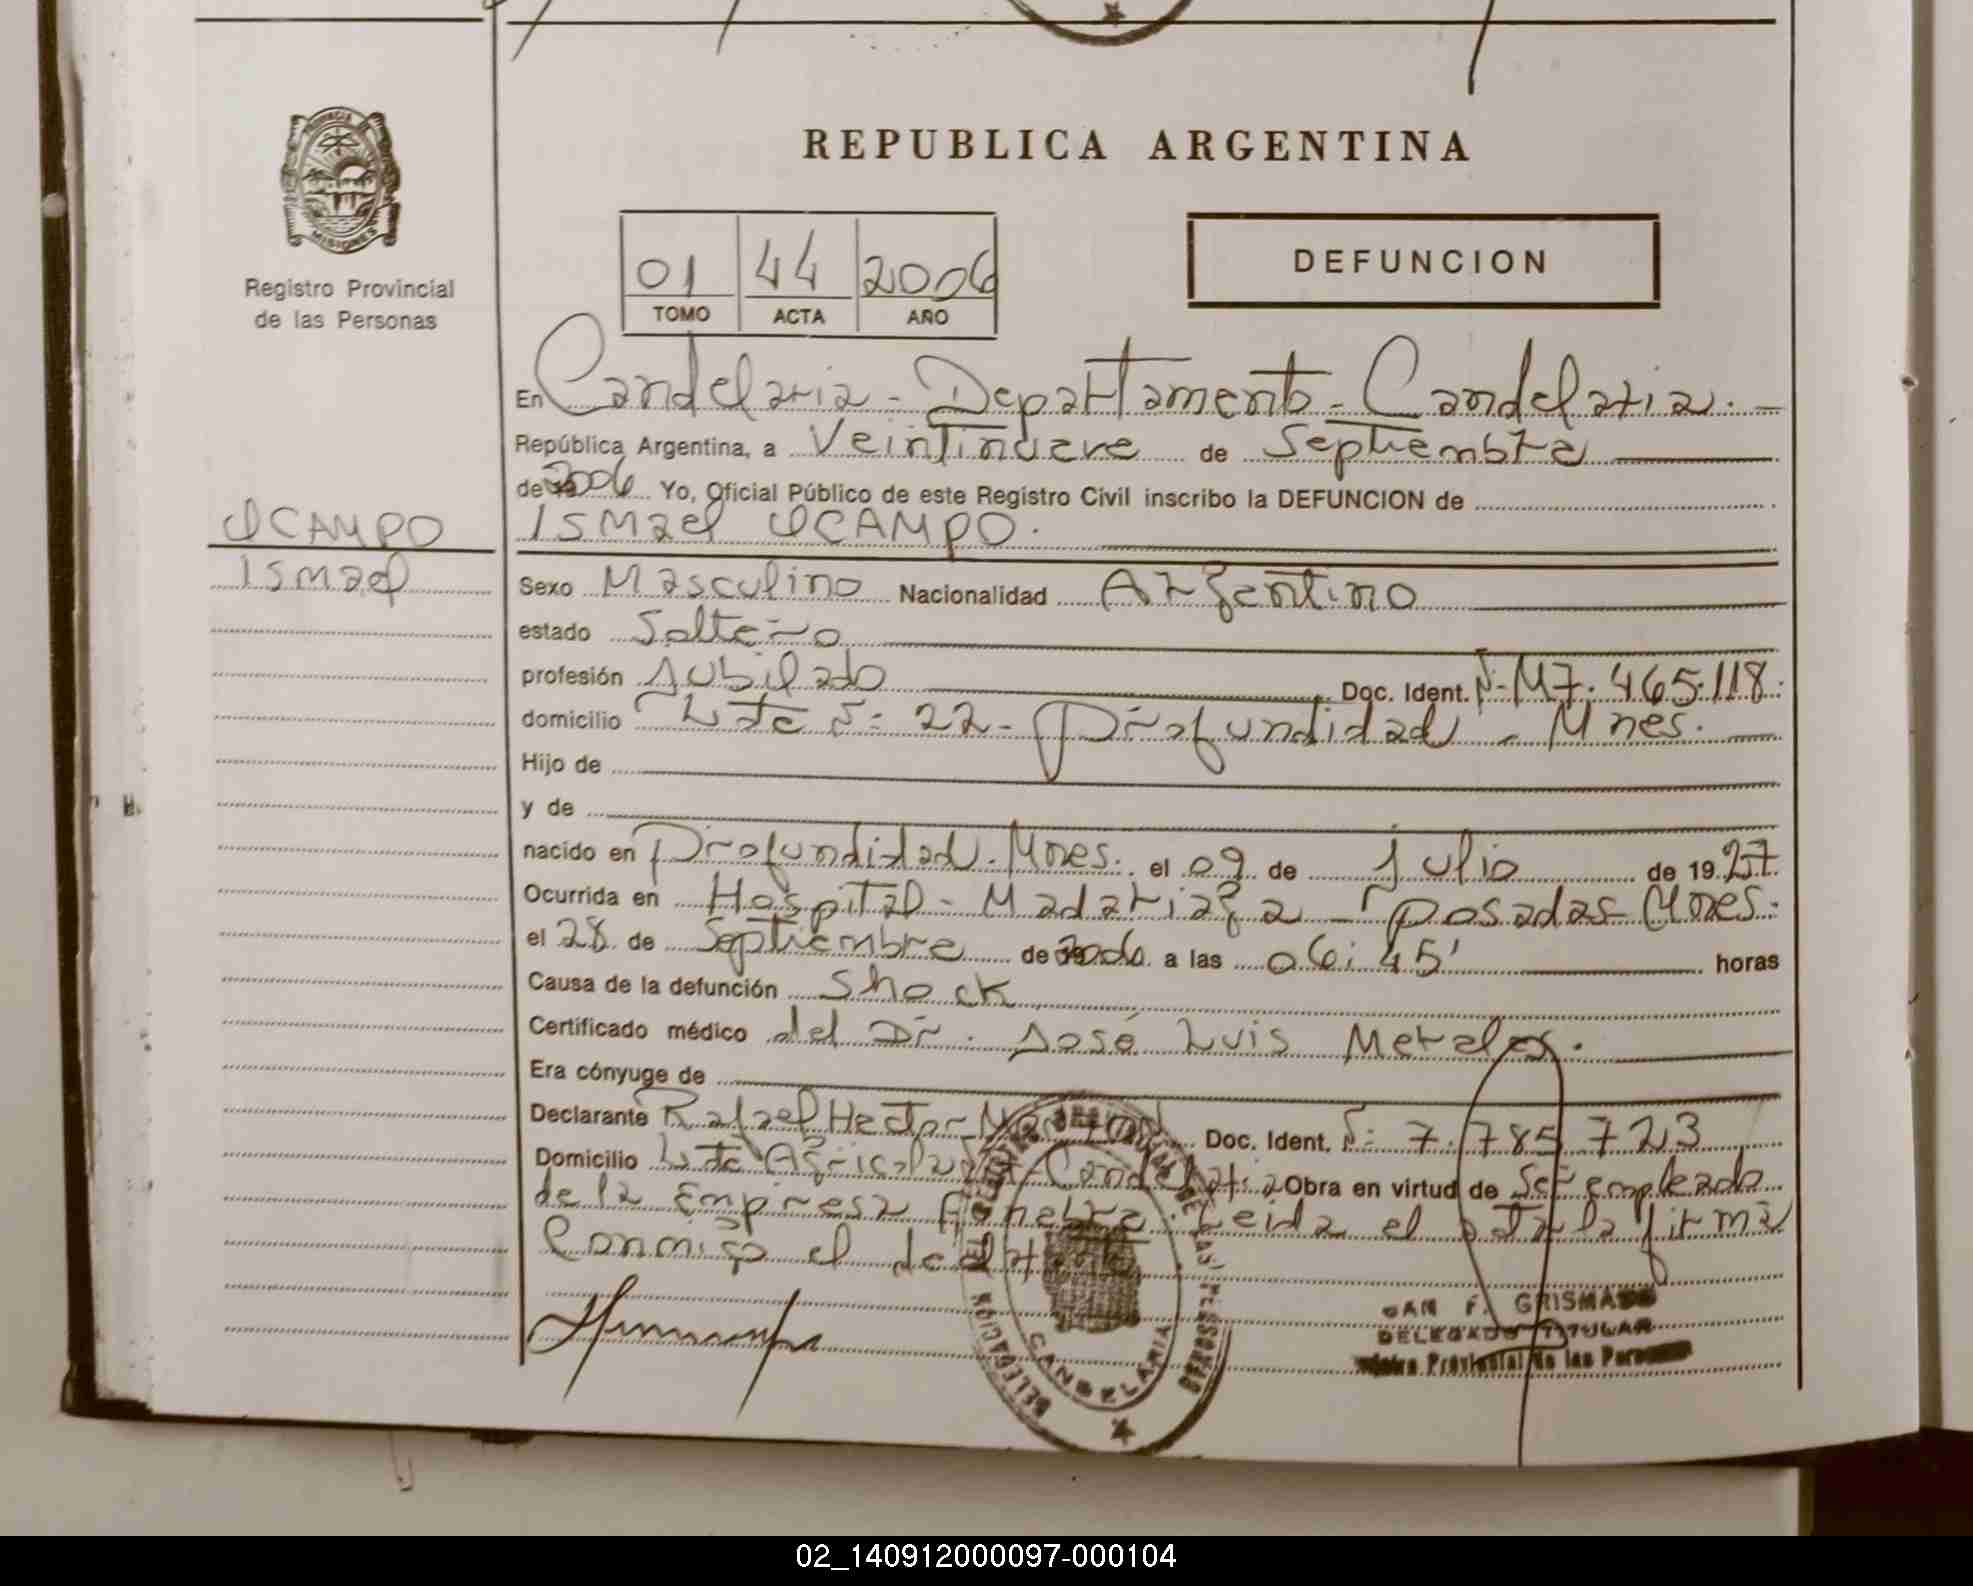 PROVINCIA DE
MISIONES
Registro Provincial
de las Personas
REPUBLICA ARGENTINA
01 44 2006
TOMO ACTA AÑO
DEFUNCION
En Candelaria - Departamento - Candelaria. -
República Argentina, a Veintinueve de Septiembre
de 2006 Yo, Oficial Público de este Registro Civil inscribo la DEFUNCION de
OCAMPO
Ismael
Ismael OCAMPO.
Sexo Masculino Nacionalidad Argentino
estado Solteiro
profesión Jubilado Doc. Ident. N- M7.465.118.
domicilio Lote N= 22 - Profundidad - Mnes.
Hijo de
y de
nacido en Profundidad. Mnes. el 09 de julio de 1927.
Ocurrida en Hospital - Madariaga - Posadas - Mnes.
el 28 de Septiembre de 2006 a las 06:45' horas
Causa de la defunción Shock
Certificado médico del Dr. José Luis
Era cónyuge de
Declarante Rafael Hector Doc. Ident. N= 7.785.723
Domicilio Lote Agricola Candelaria Obra en virtud de Ser empleado
de la Empresa Leida el acta la firma
Conmigo el
DELEGACION CANDELARIA
F. GRISMADO
DELEGADO TITULAR
Provincial de las Personas
02_140912000097-000104